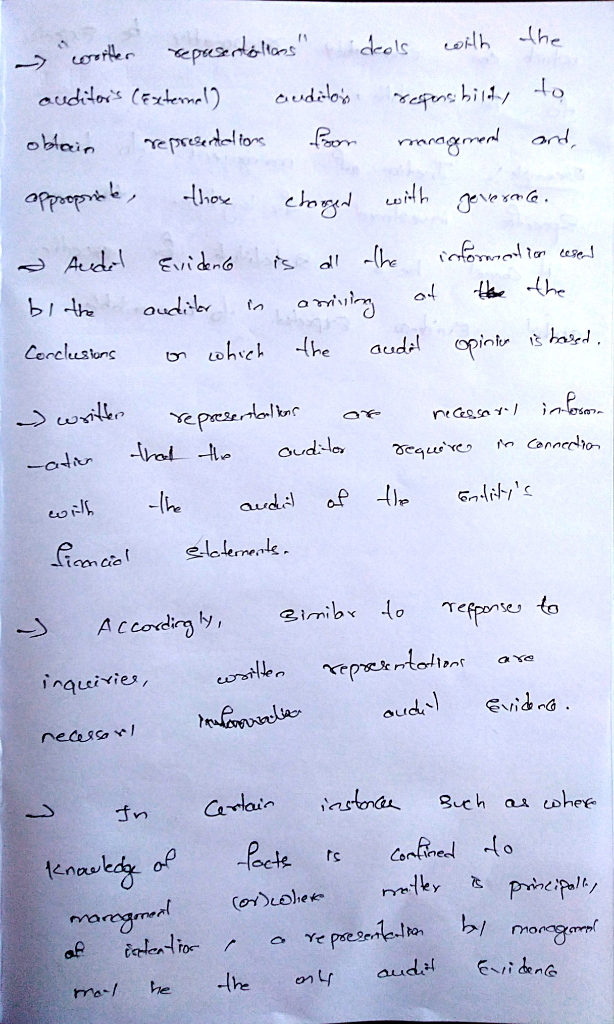 → "written representations" deals with the
auditor's (External) auditor's responsibility to
obtain representations from management and,
appropriate, those charged with goverence.
→ Audit Evidence is all the information used
by the auditor in arriving at the the
Conclusions on which the audit opinion is based.
→ written representations are necessary inform-
-ation that the auditor requires in connection
with the audit of the Entity's
financial statements.
→ Accordingly, similar to responses to
inquiries, written representations are
necessary information audit Evidence.
→ In Certain instances such as where
knowledge of facts is confined to
management (or) where matter is principally
of intention, a representation by management
may be the only audit Evidence